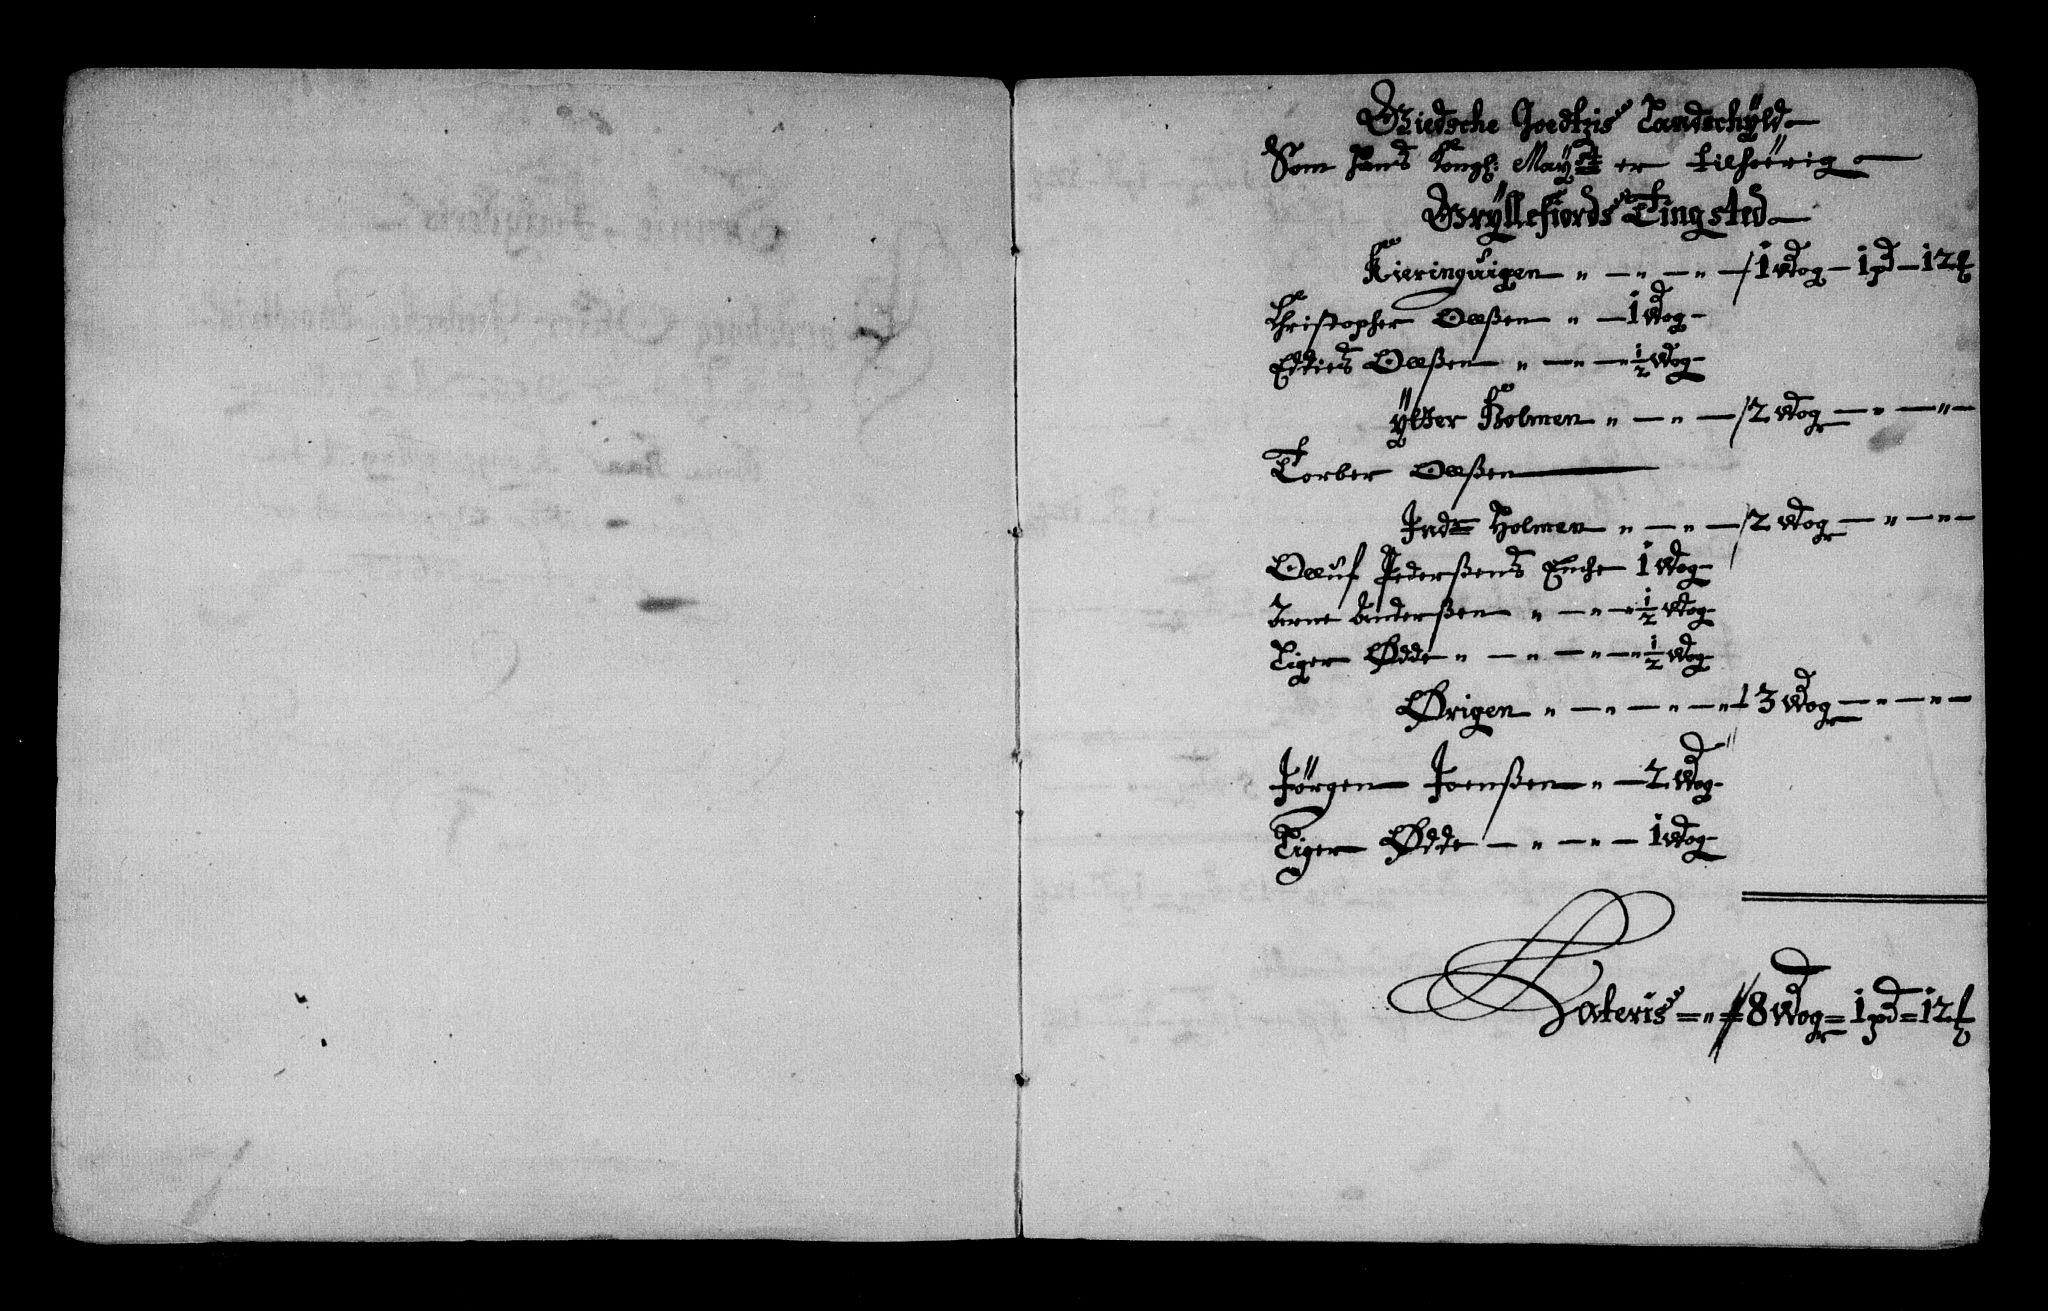 Giedsche Joedtzis Landschÿld
Som Hans Kongl: Maÿtt er tilhörig
Grÿllefiords Tingsted
Kieringuigen 1 Wog 1 pd 12 ℔
Christopher Oelßen 1 Wog
Oelßen ½ Wog
ÿtter Holmen 2 Wog
Torber Oelßen
Indr Holmen 2 Wog
Oeluf Pederßens Enche 1 Wog
Arne Anderßen ½ Wog
Liger Ødde ½ Wog
Ørigen 3 Wog
Jörgen Joenßen 2 Wog
Liger Ødde 1 Wog
Lateris 8 Wog 1 pd 12 ℔